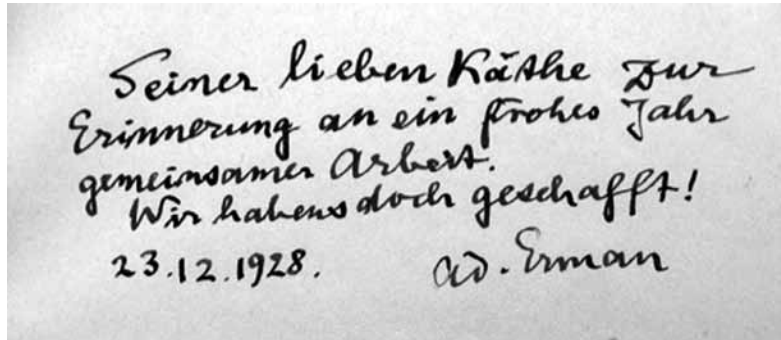 Seiner lieben Käthe zur
Erinnerung an ein frohes Jahr
gemeinsamer Arbeit.
Wir habens doch geschafft!
23.12.1928. Ad. Erman